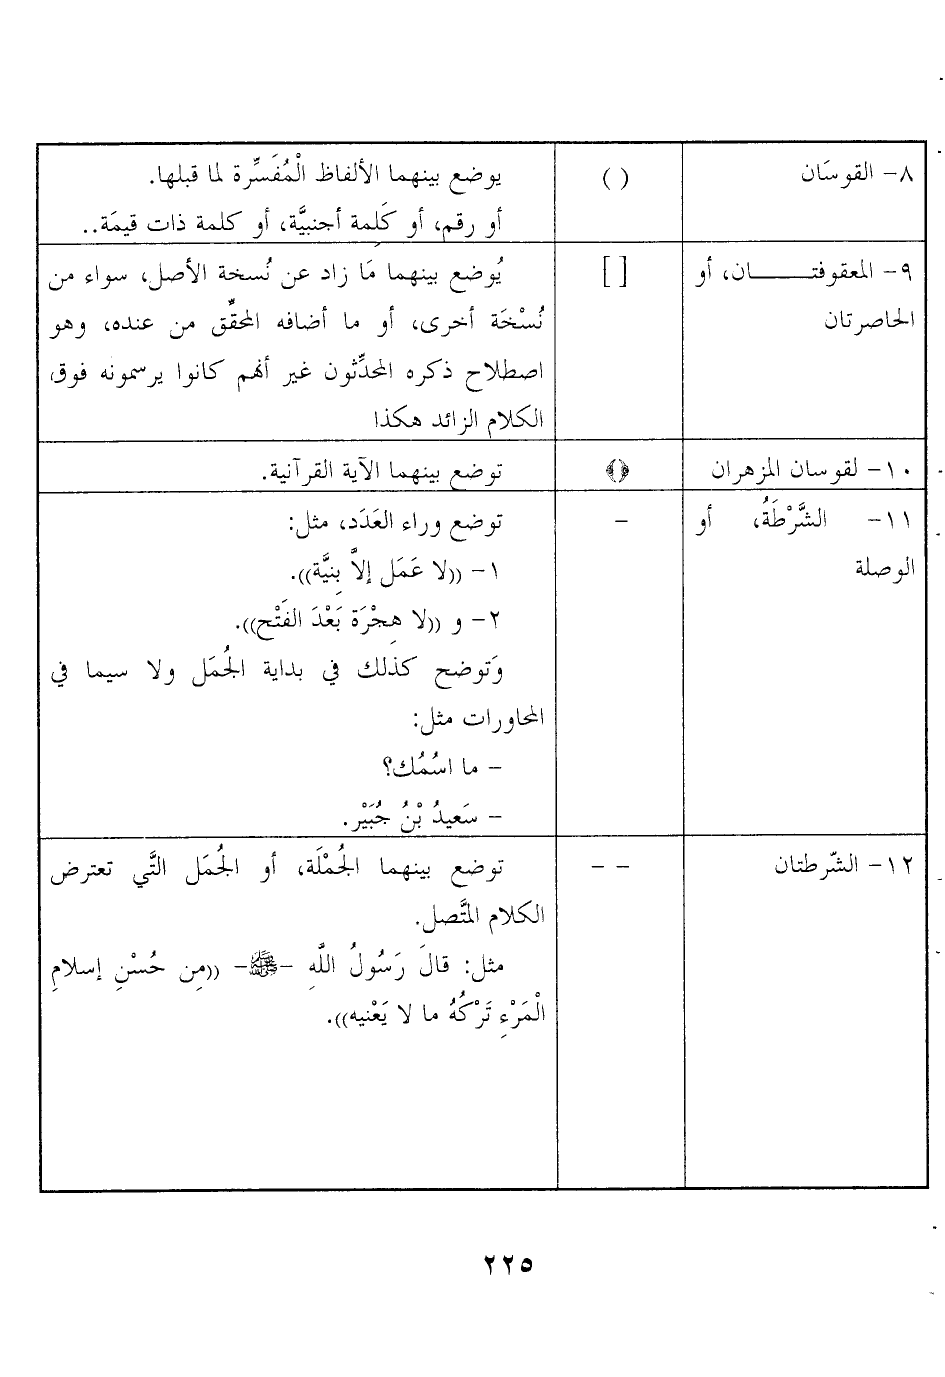 ٨- القوسَان
( )
يوضع بينهما الألفاظ الْمُفَسِّرة لما قبلها.
أو رقم، أو كَلِمة أجنبيَّة، أو كلمة ذات قيمَة..
٩- المعقوفتـــــــان، أو
الحاصرتان
[ ]
يُوضع بينهما مَا زاد عن نُسخة الأصل، سواء من
نُسْخَة أخرى، أو ما أضافه المحقِّق من عنده، وهو
اصطلاح ذكره المحدِّثون غير أنهم كانوا يرسمونه فوق
الكلام الزائد هكذا
١٠- لقوسان المزهران
﴿﴾
توضع بينهما الآية القرآنية.
١١- الشَّرْطَةُ، أو
الوصلة
–
توضع وراء العَدَد، مثل:
١- ((لا عَمَل إلاَّ بِنِيَّة)).
٢- و ((لا هِجْرَة بَعْدَ الفَتْح)).
وَتوضح كذلك في بداية الجُمَل ولا سيما في
المحاورات مثل:
– ما اسُمُك؟
– سَعيدُ بْنُ جُبَيْر.
١٢- الشّرطتان
– –
توضع بينهما الجُمْلَة، أو الجُمَل التَّي تعترض
الكلام المتَّصل.
مثل: قالَ رَسُولُ اللَّهِ –ﷺ– ((مِن حُسْنِ إسلامِ
الْمَرْءِ تَرْكُهُ ما لا يَعْنِيه)).
٢٢٥